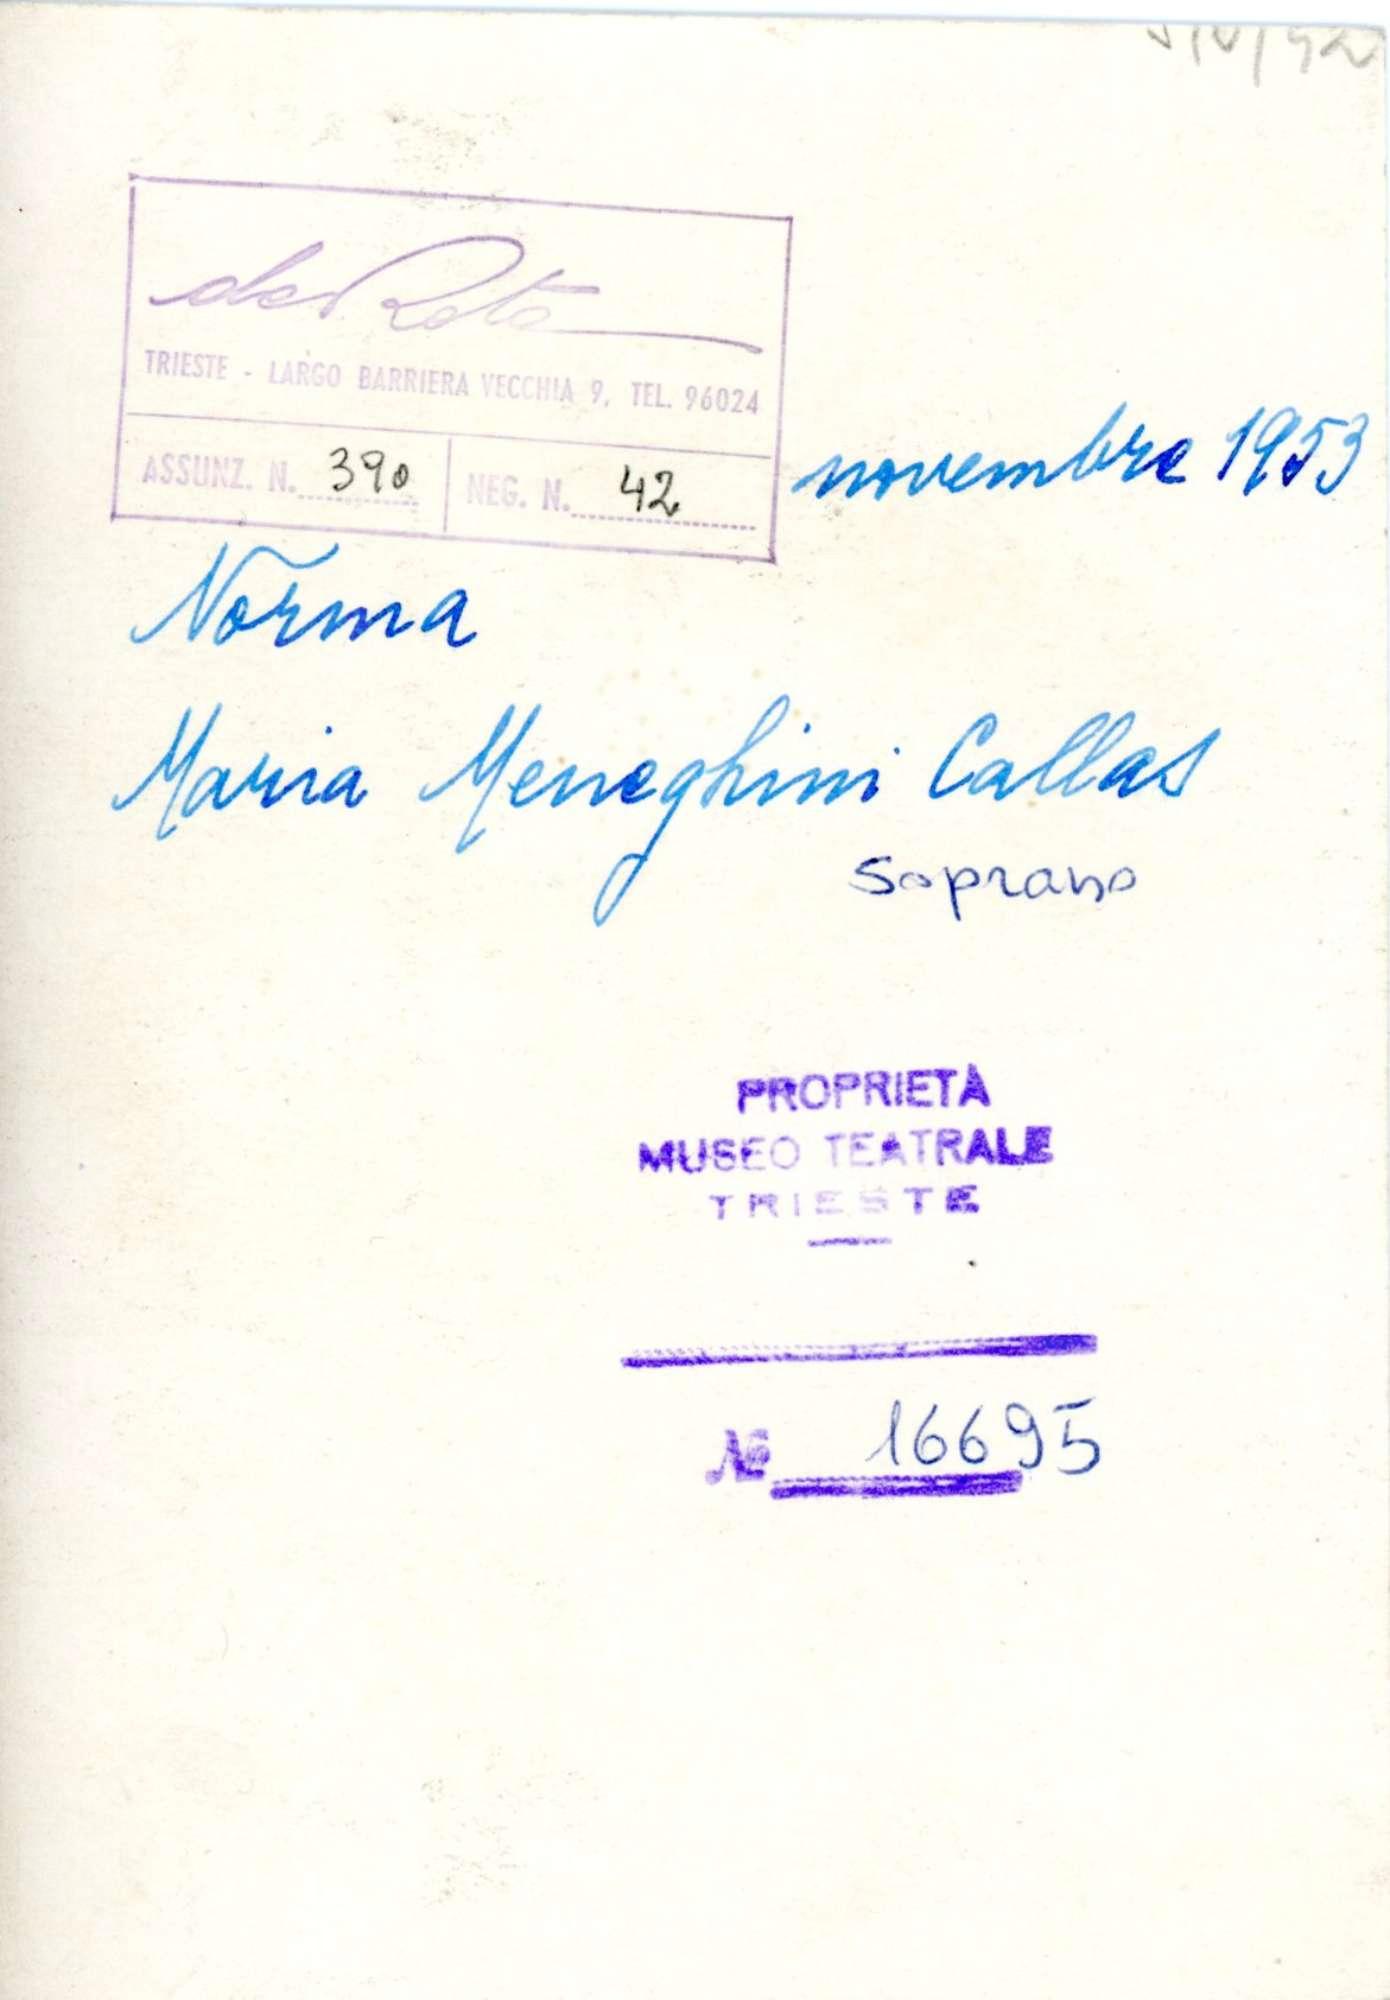 de Rota
TRIESTE - LARGO BARRIERA VECCHIA 9, TEL. 96024
ASSUNZ. N. 390 NEG. N. 42
novembre 1953
Norma
Maria Meneghini Callas
Soprano
PROPRIETÀ
MUSEO TEATRALE
TRIESTE
№ 16695